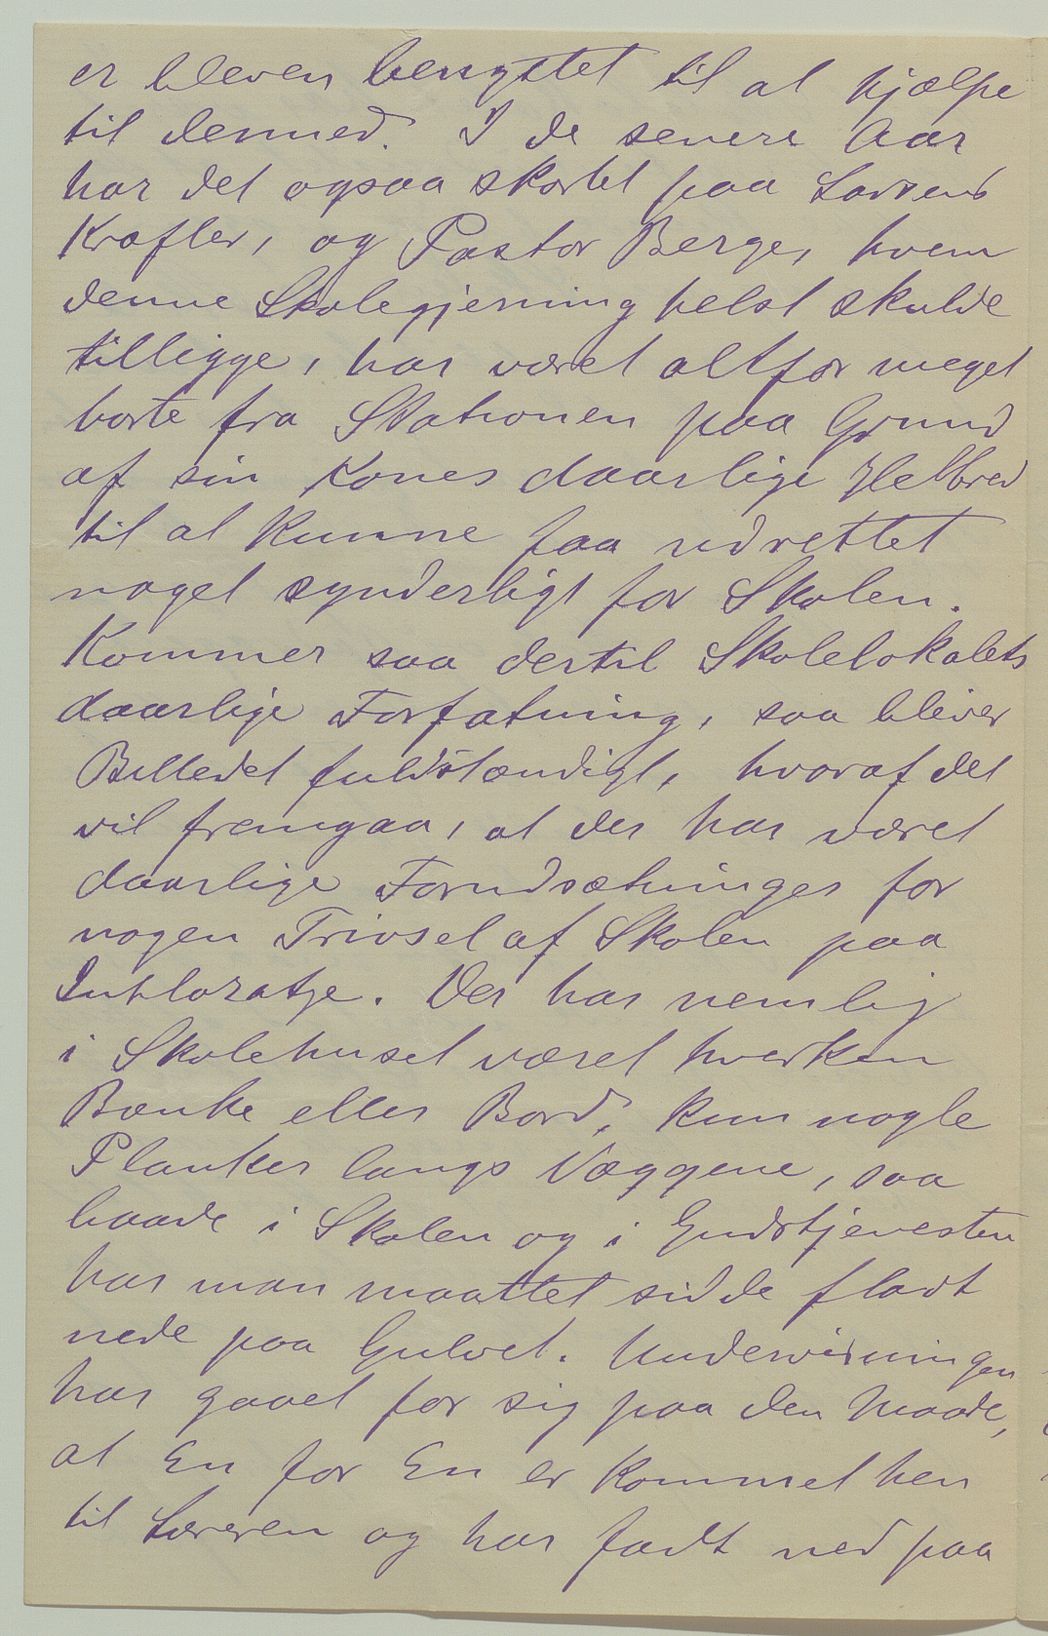 er bleven benyttet til at hjælpe
til dermed. I de senere Aar
har det ogsaa skortet paa Larsens
Kræfter, og Pastor Berge, hvem
denne Skolegjerning helst skulde
tilligge, har været altfor meget
borte fra Stationen paa Grund
af sin Kones daarlige Helbred
til at kunne faa udrettet
noget synderligt for Skolen.
Kommer saa dertil Skolelokalets
daarlige Forfatning, saa bliver
Billedet fuldstændigt, hvoraf det
vil fremgaa, at der har været
daarlige Forudsætninger for
nogen Trivsel af Skolen paa
Inhlozatje. Der har nemlig
i Skolehuset været hverken
Bænke eller Bord, kun nogle
Planker langs Væggene, saa
baade i Skolen og i Gudstjenesten
har man maattet sidde fladt
nede paa Gulvet. Undervisningen
har gaaet for sig paa den Maade,
at En for En er kommet hen
til Læreren og har sadt ned paa